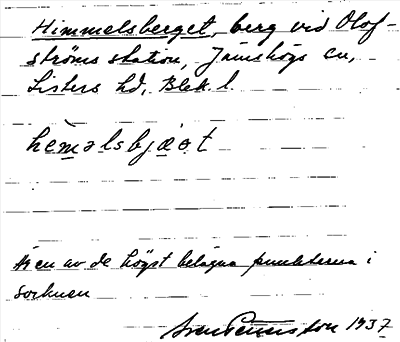 Himmelsberget, berg vid Olof-
ströms station, Jämshögs sn,
Listers hd, Blek. l.
hèməlsbjæ̀ət
Är en av de högst belägna punkterna i
socknen
Sven Benson 1937